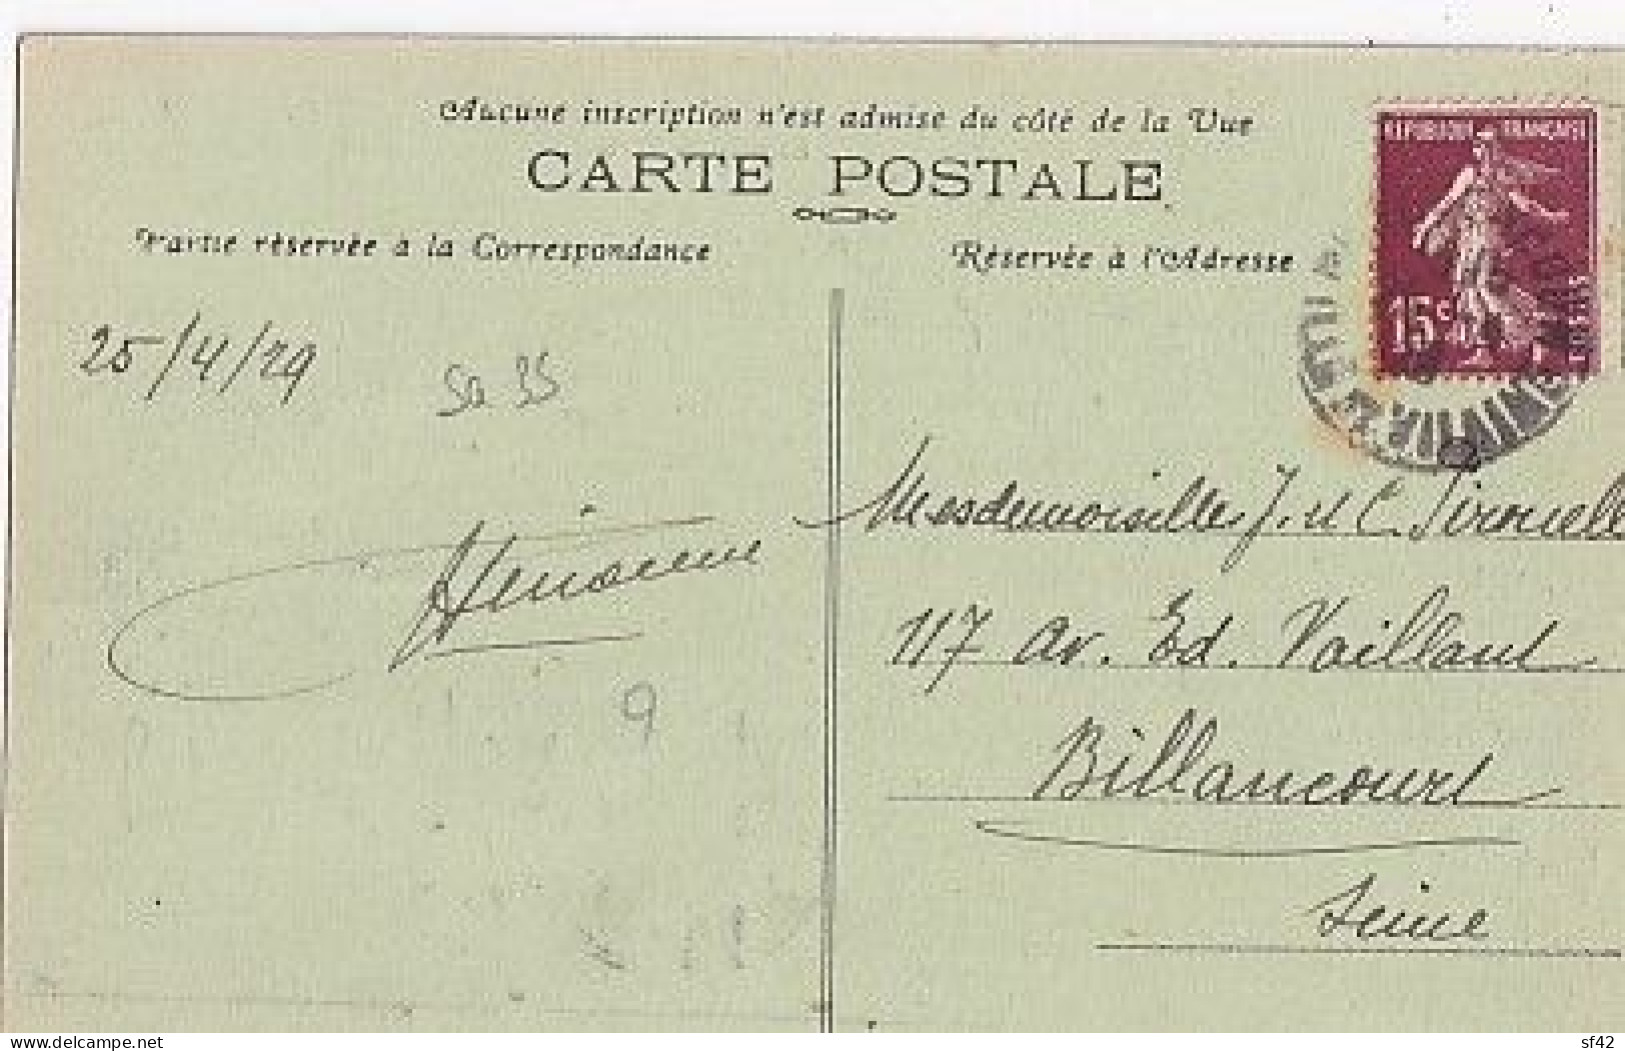 Aucune inscription n'est admise du côté de la Vue
CARTE POSTALE
Partie réservée à la Correspondance
Réservée à l'Adresse
REPUBLIQUE FRANÇAISE
15c
25/4/29
Mesdemoiselles J. et C.
117 Av. Ed. Vaillant
Billancourt
Seine
9
www.delcampe.net
sf42